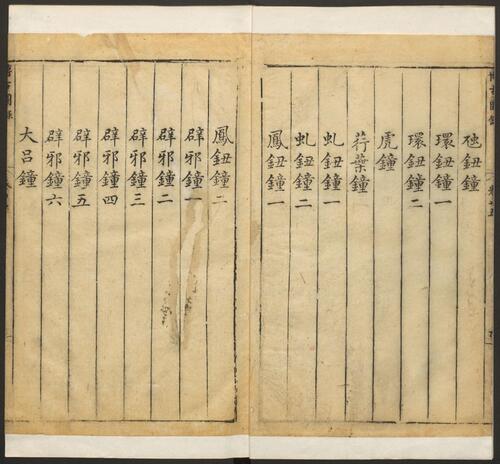 虺鈕鐘
環鈕鐘一
環鈕鐘二
虎鐘
荇葉鐘
虬鈕鐘一
虬鈕鐘二
鳳鈕鐘一
鳳鈕鐘二
辟邪鐘一
辟邪鐘二
辟邪鐘三
辟邪鐘四
辟邪鐘五
辟邪鐘六
大呂鐘